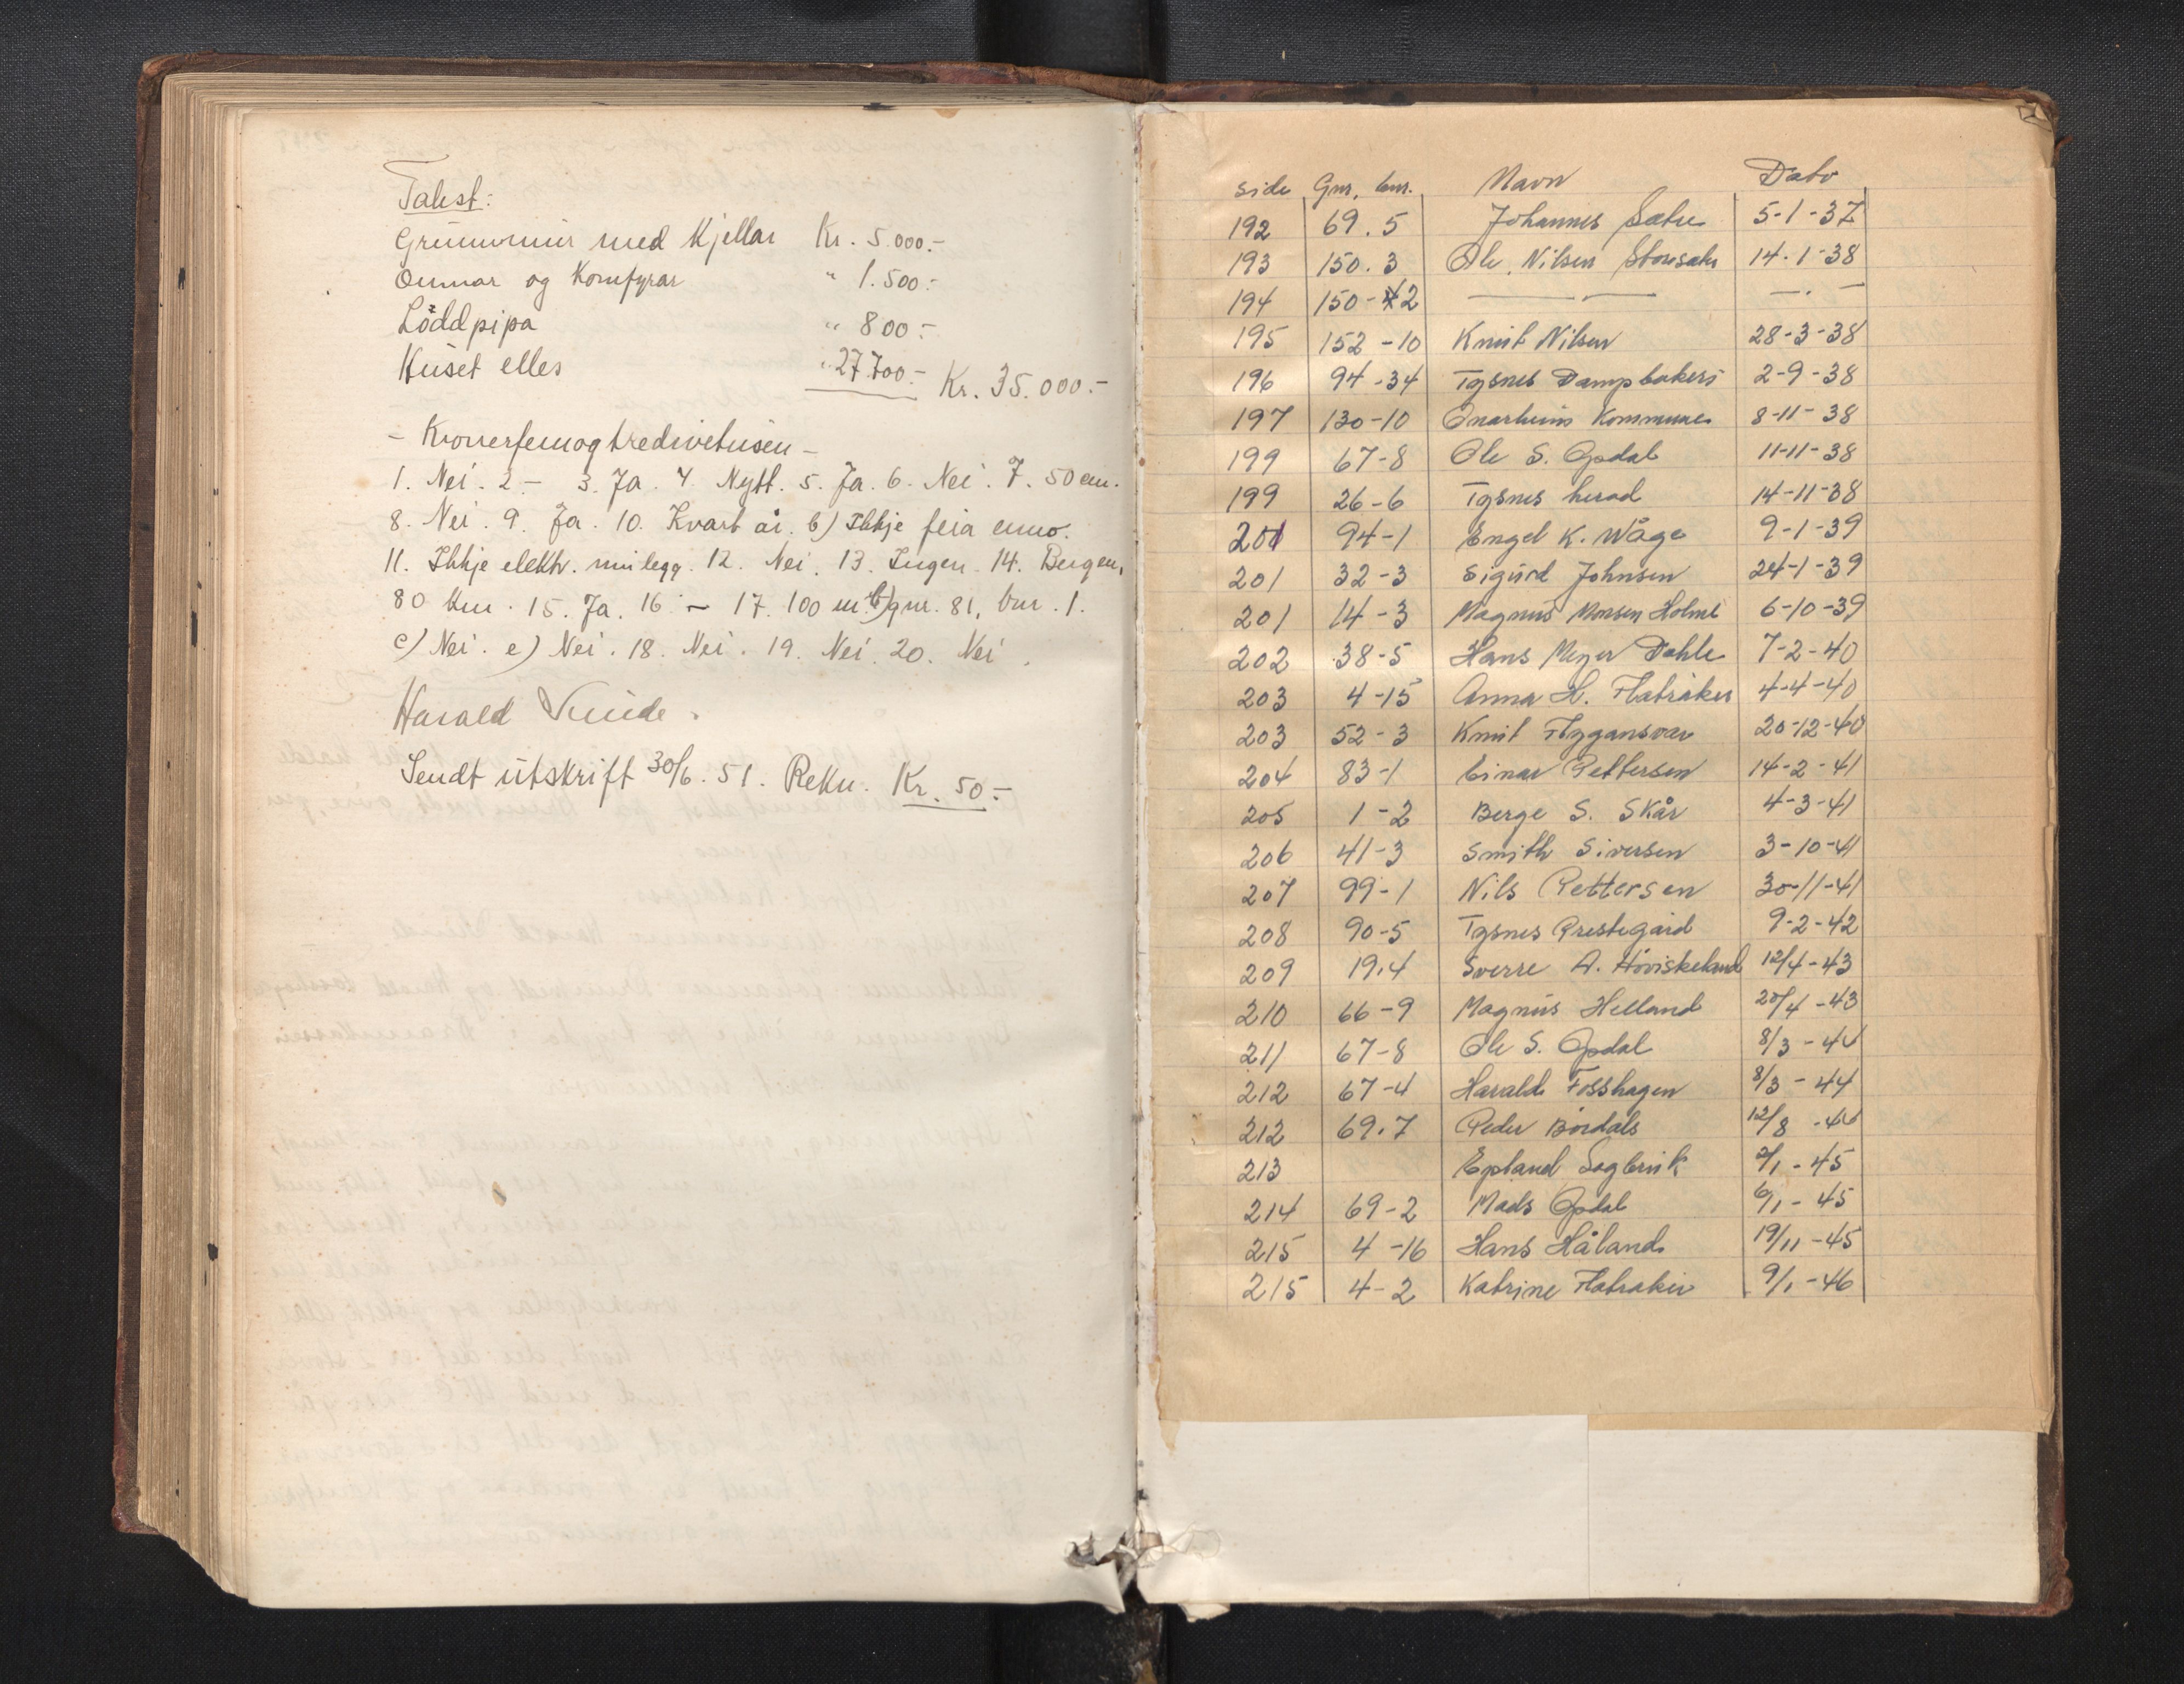 Takst:
Grunnmur med Kjellar Kr. 5.000.-
Omnar og Komfyrar " 1.500.-
Löddpipa " 800.-
Huset elles " 27.700.- Kr. 35.000.-
- Kronerfemogtredivetusen -
1. Nei. 2. - 3. Ja. 4. Nytt. 5. Ja. 6. Nei. 7. 50 cm.
8. Nei. 9. Ja. 10. Kvart år. b) Ikkje feia enno.
11. Ikkje elektr. innlegg. 12. Nei. 13. Ingen. 14. Bergen,
80 km. 15. Ja. 16. - 17. 100 m. b) gnr. 81, bnr. 1.
c) Nei. e) Nei. 18. Nei. 19. Nei. 20. Nei.
Harald
Sendt utskrift 30/6. 51. Rekn. Kr. 50.-
side Gnr. bnr. Navn Dato
192 69.5 Johannes Sætre 5-1-37
193 150.3 Ole Nilsen 14.1-38
194 150-2 — — — . —
195 152-10 Knut Nilsen 28-3-38
196 94-34 Tysnes Dampbakeri 2-9-38
197 130-10 Onarheim Kommune 8-11-38
199 67-8 Ole S. Opdal 11-11-38
199 26-6 Tysnes herad 14-11-38
201 94-1 Engel K. Wåge 9-1-39
201 32-3 Sigurd Johnsen 24-1-39
201 14-3 Magnus Monsen Holme 6-10-39
202 38-5 Hans Meyer Dahle 7-2-40
203 4-15 Anna H. Flatråker 4-4-40
203 52-3 Knut Flygansvær 20-12-40
204 83-1 Einar Pettersen 14-2-41
205 1-2 Berge S. Skår 4-3-41
206 41-3 Smith Siversen 3-10-41
207 99-1 Nils Pettersen 30-11-41
208 90-5 Tysnes Prestegård 9-2-42
209 19.4 Sverre A. Høviskeland 12/4-43
210 66-9 Magnus Helland 20/4-43
211 67-8 Ole S. Opdal 8/3-44
212 67-4 Harald Fosshagen 8/3-44
212 69.7 Peder Bördals 12/8-44
213 Epland Sagbruk 2/1-45
214 69-2 Mads Opdal 6/1-45
215 4-16 Hans Håland 19/11-45
215 4-2 Katrine Flatråker 9/1-46